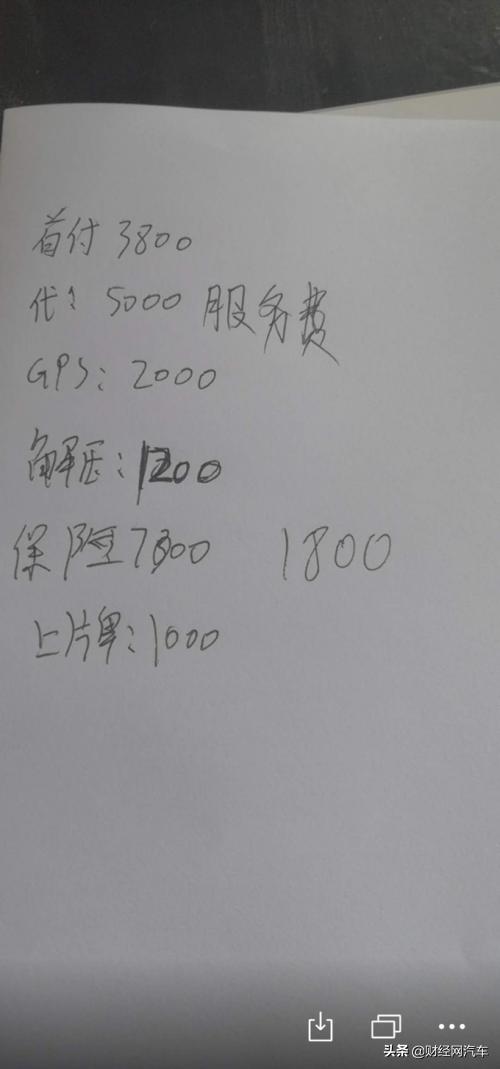 首付 3800
代: 5000 服务费
GPS: 2000
解压: 1200
保险7300 1800
上牌: 1000
头条 @财经网汽车